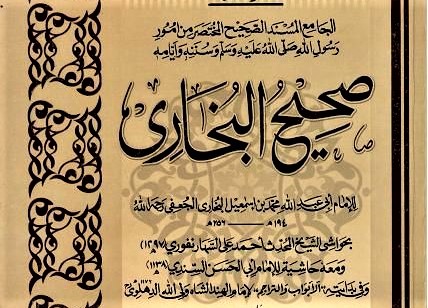 الجامع المسند الصحيح المختصر من أمور
رسول الله صلى الله عليه وسلم وسننه وأيامه
صحيح البخاري
للإمام أبي عبد الله محمد بن اسمعيل البخاري الجعفي رحمه الله
١٩٤ھ - ٢٥٦ھ
بحواشي الشيخ المحدث أحمد علي السهارنفوري (١٢٩٧)
ومعه حاشية للإمام أبي الحسن السندي (١١٣٨)
وفي بدايته الأبواب والتراجم للإمام الهند الشاه ولي الله الدهلوي